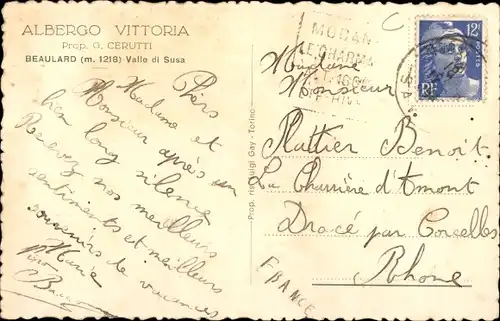 ALBERGO VITTORIA
Prop. G. CERUTTI
BEAULARD (m. 1218) Valle di Susa
Chers
Madame et
Monsieur après un
bien long silence
Recevez nos meilleurs
sentiments et meilleurs
souvenirs de vacances
Marie
Prop. Luigi Gay - Torino
MODAN
12F
POSTES
RF
Madame
Monsieur
Ruttier Benoit
La Charrière d'Amont
Dracé par Corcelles
Rhône
FRANCE